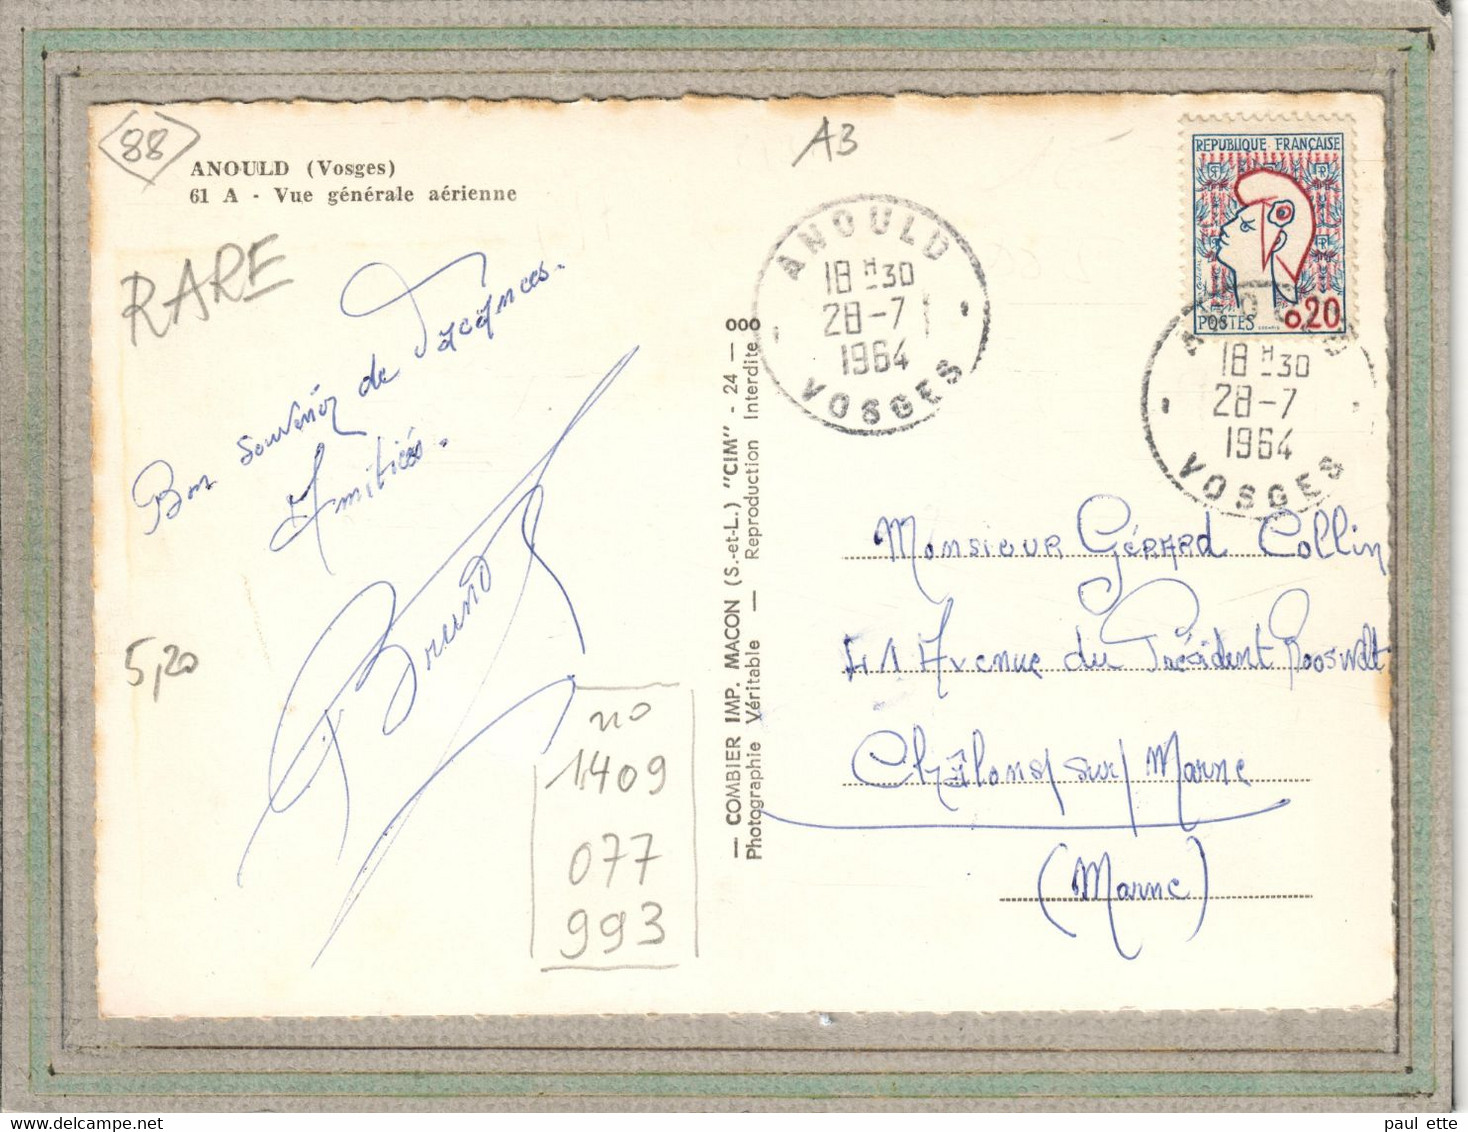 88
ANOULD (Vosges)
61 A - Vue générale aérienne
RARE
A3
Bon souvenir de Vacances.
Amitiés.
Bruno
5,20
no
1409
077
993
— COMBIER IMP. MACON (S.-et-L.) "CIM" - 24 — ooo
Photographie Véritable — Reproduction Interdite
ANOULD
18 H 30
28-7
1964
VOSGES
REPUBLIQUE FRANÇAISE
POSTES
0.20
18 H 30
28-7
1964
VOSGES
Monsieur Gérard Collin
41 Avenue du Président Rooswelt
Châlons/sur/Marne
(Marne)
paul ette